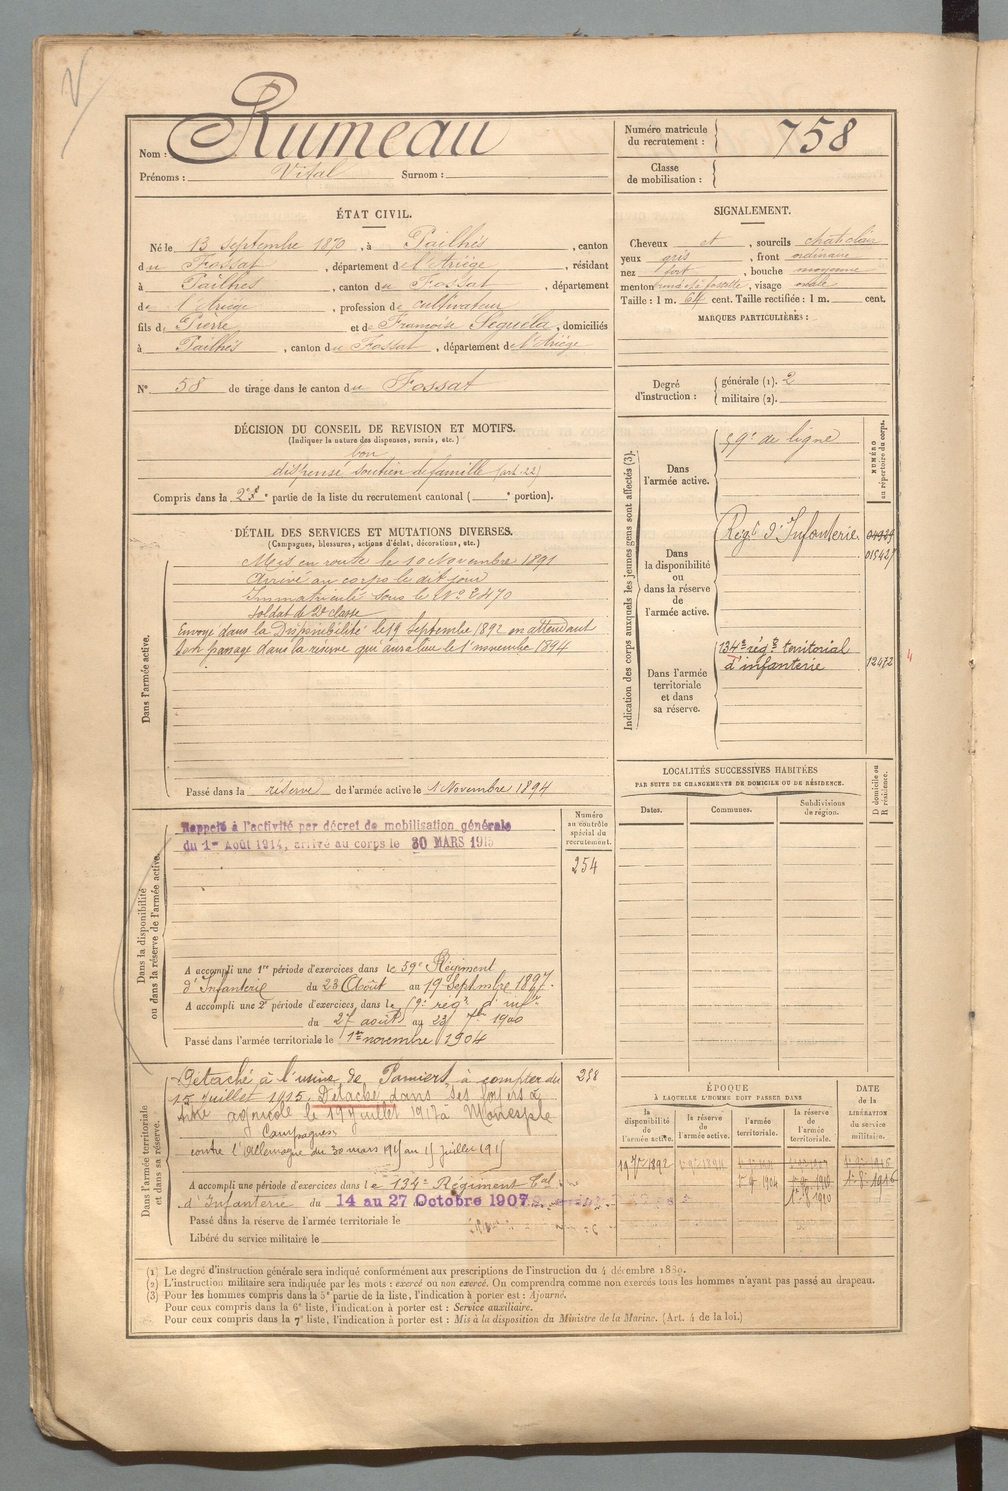 Nom : Rumeau
Prénoms : Vital Surnom :
Numéro matricule du recrutement : 758
Classe de mobilisation :
ÉTAT CIVIL.
Né le 13 Septembre 1870, à Pailhès, canton
du Fossat, département de l'Ariège, résidant
à Pailhès, canton du Fossat, département
de l'Ariège, profession de cultivateur
fils de Pierre et de Françoise Séguéla, domiciliés
à Pailhès, canton du Fossat, département de l'Ariège
N° 58 de tirage dans le canton du Fossat
SIGNALEMENT.
Cheveux et, sourcils chat. clair
yeux gris, front ordinaire
nez fort, bouche moyenne
menton rond à fossette, visage ovale
Taille : 1 m. 64 cent. Taille rectifiée : 1 m. cent.
MARQUES PARTICULIÈRES :
Degré d'instruction : générale (1). 2
militaire (2).
DÉCISION DU CONSEIL DE REVISION ET MOTIFS.
(Indiquer la nature des dispenses, sursis, etc.)
bon
dispensé soutien de famille (art. 22)
Compris dans la 2e partie de la liste du recrutement cantonal ( e portion).
DÉTAIL DES SERVICES ET MUTATIONS DIVERSES.
(Campagnes, blessures, actions d'éclat, décorations, etc.)
Dans l'armée active.
Mis en route le 10 Novembre 1891
Arrivé au corps le dit jour
Immatriculé sous le N° 2470
Soldat de 2e classe
Envoyé dans la Disponibilité le 19 Septembre 1892 en attendant
son passage dans la réserve qui aura lieu le 1er novembre 1894
Passé dans la réserve de l'armée active le 1 Novembre 1894
Indication des corps auxquels les jeunes gens sont affectés (3).
NUMÉRO au répertoire du corps.
Dans l'armée active.
59e de ligne
Dans la disponibilité ou dans la réserve de l'armée active.
Régt d'Infanterie
015427
Dans l'armée territoriale et dans sa réserve.
134e régt territorial
d'infanterie
12472
4
LOCALITÉS SUCCESSIVES HABITÉES
PAR SUITE DE CHANGEMENTS DE DOMICILE OU DE RÉSIDENCE.
Dates. Communes. Subdivisions de région. D domicile ou R résidence.
Dans la disponibilité ou dans la réserve de l'armée active.
Rappelé à l'activité par décret de mobilisation générale
du 1er Août 1914, arrivé au corps le 30 MARS 1915
Numéro au contrôle spécial du recrutement.
254
A accompli une 1re période d'exercices dans le 59e Régiment
d'Infanterie du 23 Août au 19 Septembre 1897.
A accompli une 2e période d'exercices dans le régt d'infie
du 27 août au 23 7bre 1900
Passé dans l'armée territoriale le 1er novembre 1904
Dans l'armée territoriale et dans sa réserve.
Détaché à l'usine de Pamiers à compter du
15 Juillet 1915. Détaché dans ses foyers à
agricole le Juillet 1917 à
Campagnes
contre l'Allemagne du 30 mars 1915 au 15 juillet 1915
A accompli une période d'exercices dans le 134e Régiment Tal
d'Infanterie du 14 au 27 Octobre 1907.
Passé dans la réserve de l'armée territoriale le
Libéré du service militaire le
ÉPOQUE
À LAQUELLE L'HOMME DOIT PASSER DANS
la disponibilité de l'armée active.
la réserve de l'armée active.
l'armée territoriale.
la réserve de l'armée territoriale.
DATE de la LIBÉRATION du service militaire.
(1) Le degré d'instruction générale sera indiqué conformément aux prescriptions de l'instruction du 4 décembre 1889.
(2) L'instruction militaire sera indiquée par les mots : exercé ou non exercé. On comprendra comme non exercés tous les hommes n'ayant pas passé au drapeau.
(3) Pour les hommes compris dans la 5e partie de la liste, l'indication à porter est : Ajourné.
Pour ceux compris dans la 6e liste, l'indication à porter est : Service auxiliaire.
Pour ceux compris dans la 7e liste, l'indication à porter est : Mis à la disposition du Ministre de la Marine. (Art. 4 de la loi.)